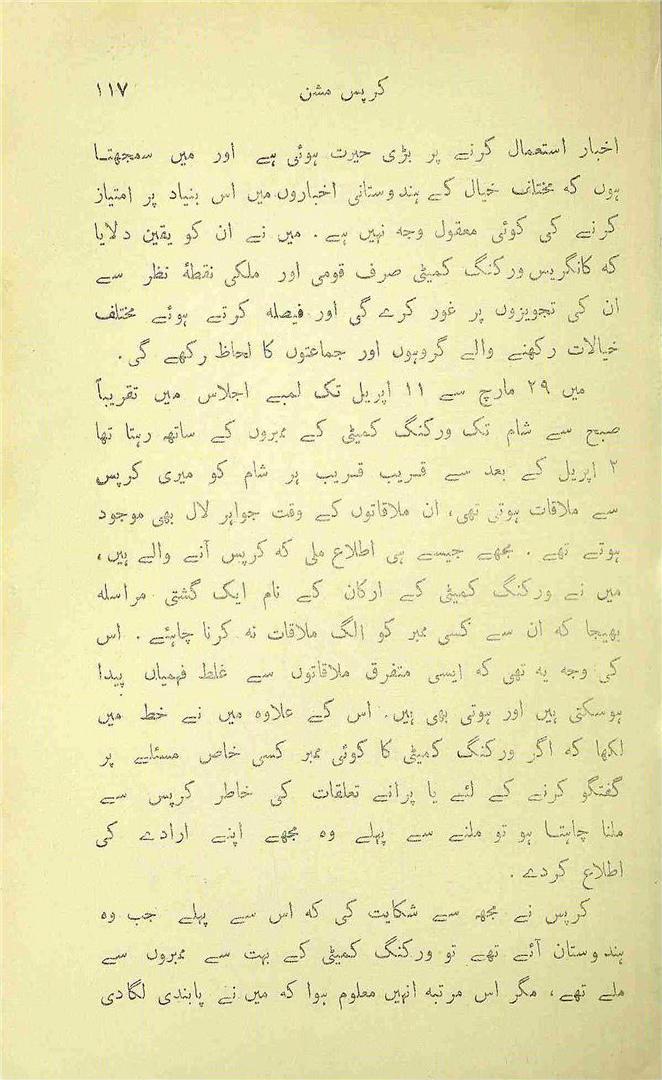 کرپس مشن ۱۱۷
اخبار استعمال کرنے پر بڑی حیرت ہوئی ہے اور میں سمجھتا
ہوں کہ مختلف خیال کے ہندوستانی اخباروں میں اس بنیاد پر امتیاز
کرنے کی کوئی معقول وجہ نہیں ہے . میں نے ان کو یقین دلایا
کہ کانگریس ورکنگ کمیٹی صرف قومی اور ملکی نقطۂ نظر سے
ان کی تجویزوں پر غور کرے گی اور فیصلہ کرتے ہوئے مختلف
خیالات رکھنے والے گروہوں اور جماعتوں کا لحاظ رکھے گی .
میں ۲۹ مارچ سے ۱۱ اپریل تک لمبے اجلاس میں تقریباً
صبح سے شام تک ورکنگ کمیٹی کے ممبروں کے ساتھ رہتا تھا
۲ اپریل کے بعد سے قریب قریب ہر شام کو میری کرپس
سے ملاقات ہوتی تھی، ان ملاقاتوں کے وقت جواہر لال بھی موجود
ہوتے تھے . مجھے جیسے ہی اطلاع ملی کہ کرپس آنے والے ہیں،
میں نے ورکنگ کمیٹی کے ارکان کے نام ایک گشتی مراسلہ
بھیجا کہ ان سے کسی ممبر کو الگ ملاقات نہ کرنا چاہئے . اس
کی وجہ یہ تھی کہ ایسی متفرق ملاقاتوں سے غلط فہمیاں پیدا
ہوسکتی ہیں اور ہوتی بھی ہیں. اس کے علاوہ میں نے خط میں
لکھا کہ اگر ورکنگ کمیٹی کا کوئی ممبر کسی خاص مسئلے پر
گفتگو کرنے کے لئے یا پرانے تعلقات کی خاطر کرپس سے
ملنا چاہتا ہو تو ملنے سے پہلے وہ مجھے اپنے ارادے کی
اطلاع کردے .
کرپس نے مجھ سے شکایت کی کہ اس سے پہلے جب وہ
ہندوستان آئے تھے تو ورکنگ کمیٹی کے بہت سے ممبروں سے
ملے تھے، مگر اس مرتبہ انہیں معلوم ہوا کہ میں نے پابندی لگادی